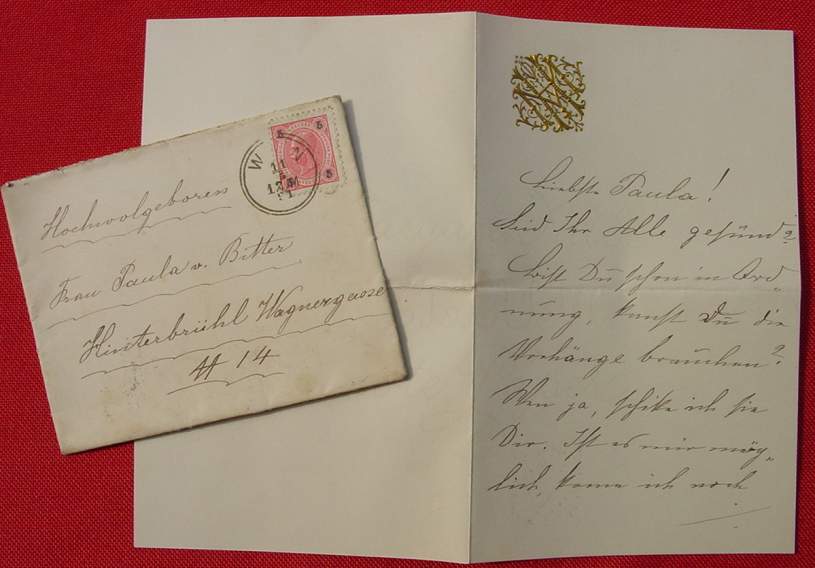 Hochwolgeboren
Frau Paula v. Bitter
Hinterbrühl Wagnergasse
# 14
W N
5 5
5
Liebste Paula!
Seid Ihr Alle gesund?
Bist Du schon in Ord„
nung, kanst Du die
Vorhänge brauchen?
Wen ja, schike ich sie
Dir. Ist es mir mög„
lich, kome ich noch